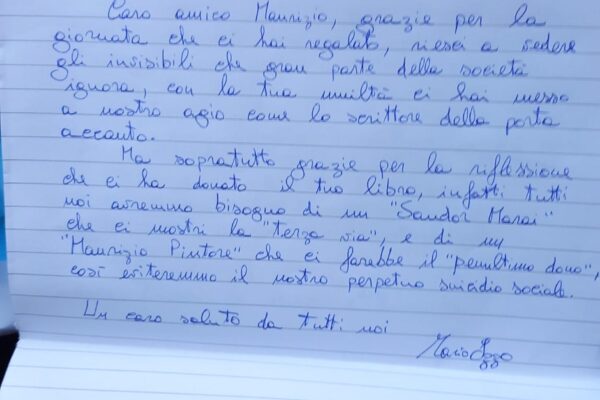 Caro amico Maurizio, grazie per la
giornata che ci hai regalato, riesci a vedere
gli invisibili che gran parte della società
ignora, con la tua umiltà ci hai messo
a nostro agio come lo scrittore della porta
accanto.
Ma sopratutto grazie per la riflessione
che ci ha donato il tuo libro, infatti tutti
noi avremmo bisogno di un "Sandor Marai"
che ci mostri la "terza via", e di un
"Maurizio Pintore" che ci farebbe il "penultimo dono",
così eviteremmo il nostro perpetuo suicidio sociale.
Un caro saluto da tutti noi